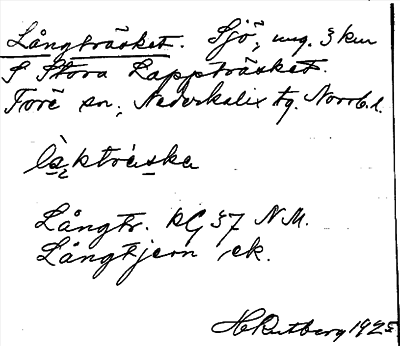 Långträsket. Sjö, ung. 3 km
S Stora Lappträsket.
Töre sn, Nederkalix tg. Norrb. l.
Långtr. KG 37 N.M.
Långtjern ek.
H Rutberg 1925